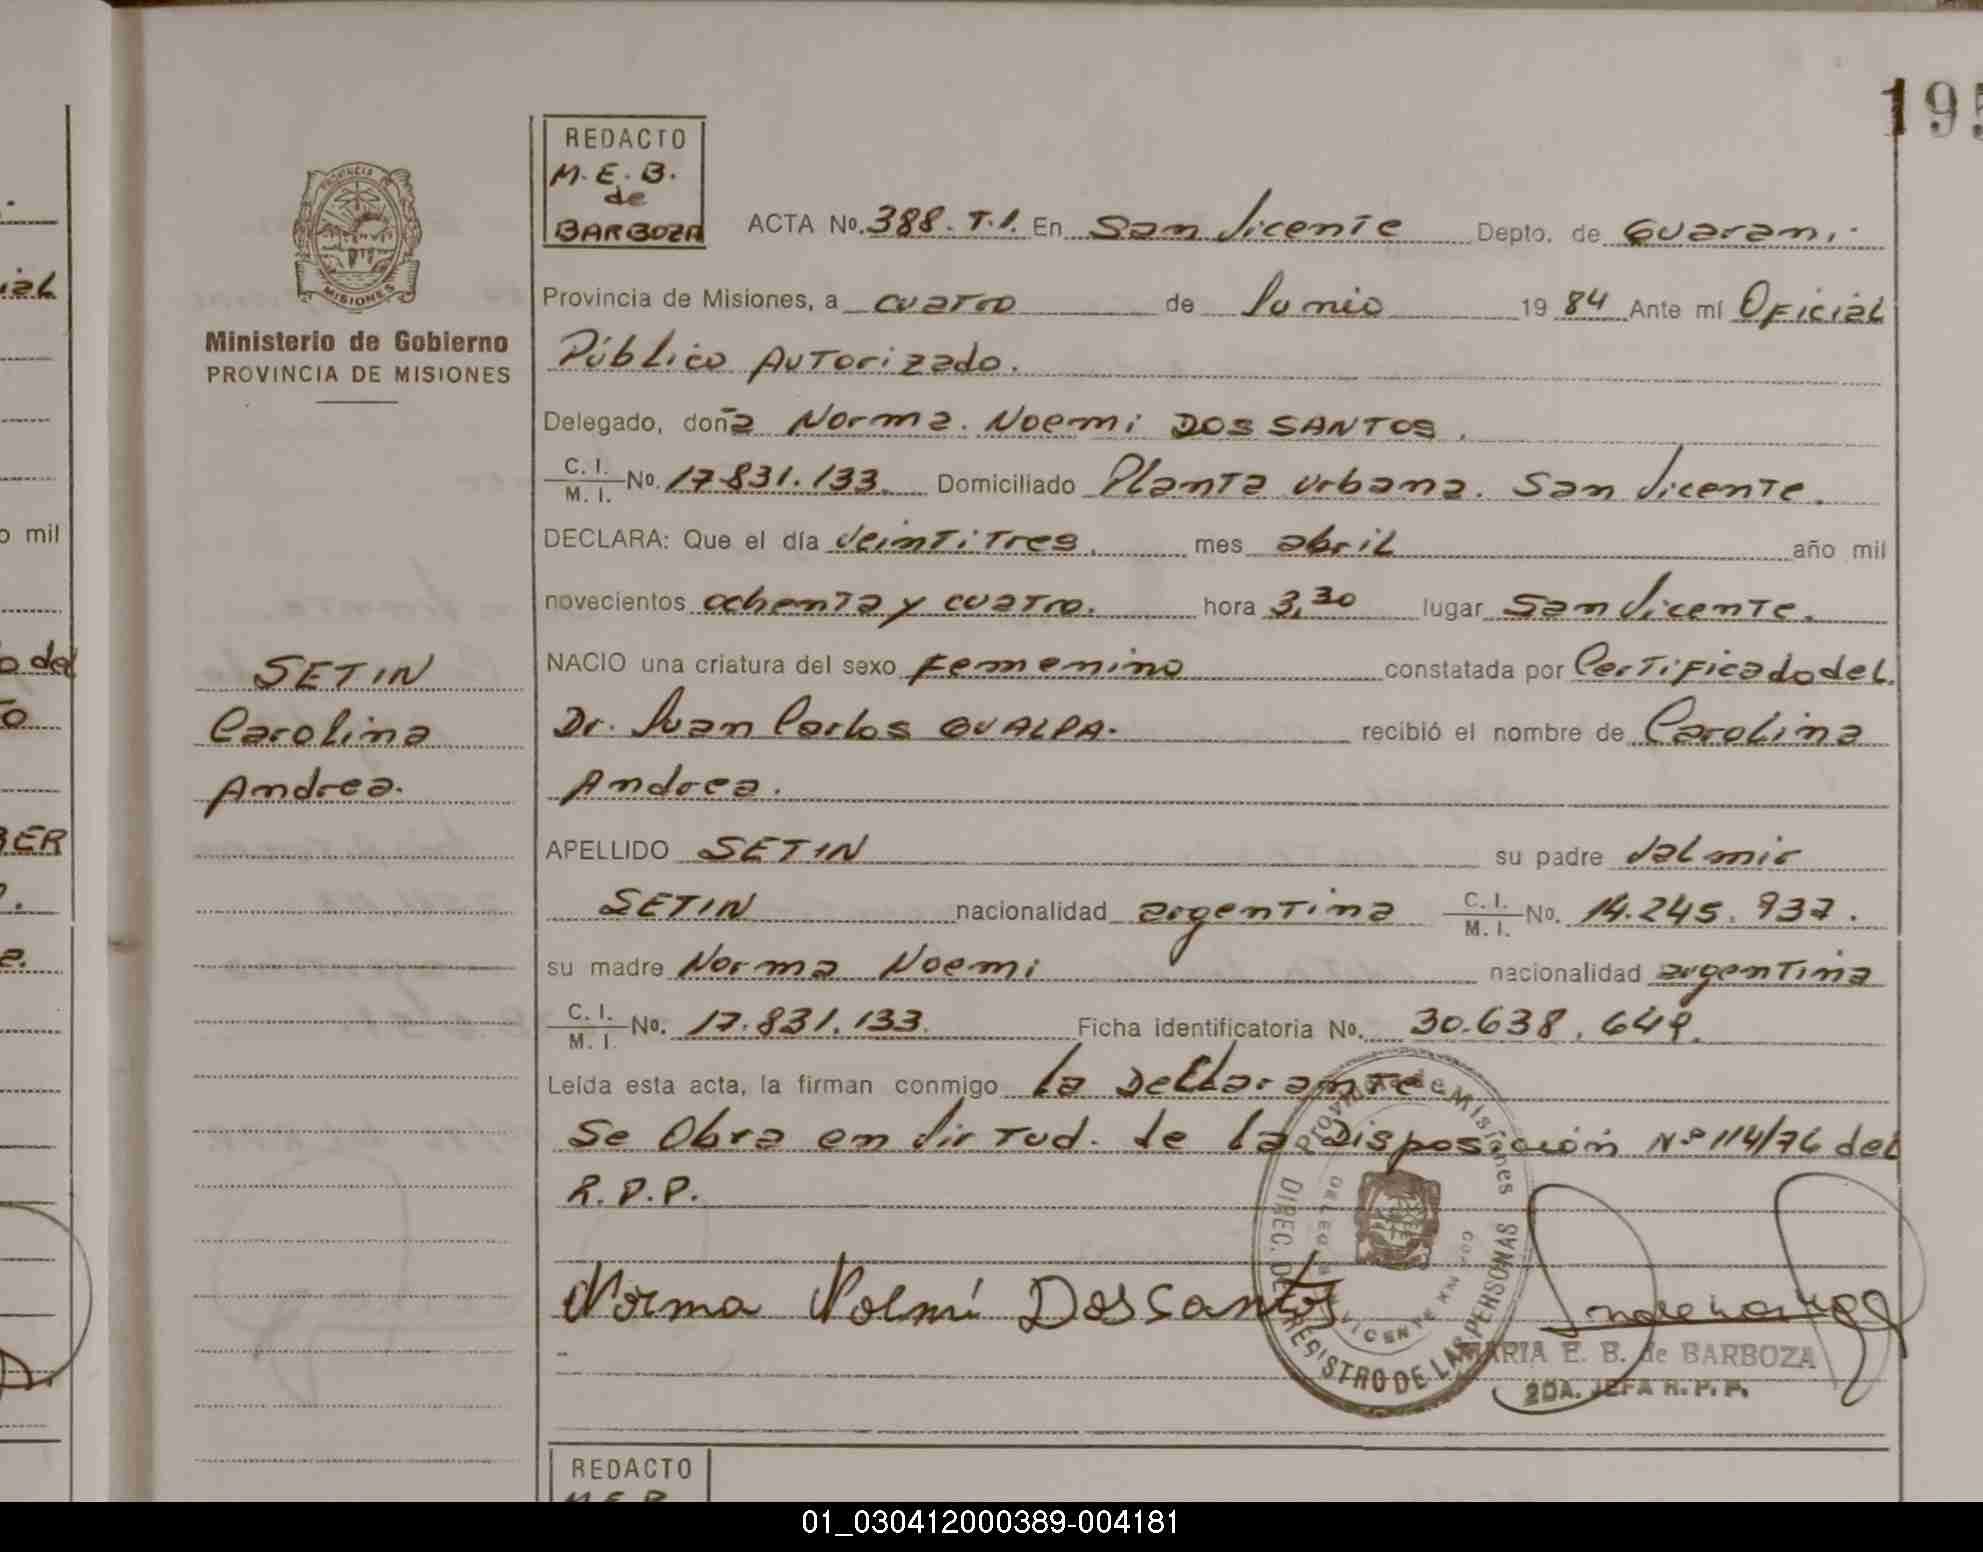 195
REDACTO
M.E.B.
de
BARBOZA
PROVINCIA
MISIONES
Ministerio de Gobierno
PROVINCIA DE MISIONES
ACTA No. 388. T.I. En San Vicente Depto. de Guarani.
Provincia de Misiones, a cuatro de Junio 19 84 Ante mí Oficial
Público Autorizado.
Delegado, doña Norma. Noemi DOS SANTOS.
C. I. / M. I. No. 17.831.133. Domiciliado Planta Urbana. San Vicente.
DECLARA: Que el día veintitres. mes abril año mil
novecientos ochenta y cuatro. hora 3,30 lugar San Vicente.
NACIO una criatura del sexo Femenino constatada por Certificado del.
Dr. Juan Carlos GUALPA. recibió el nombre de Carolina
Andrea.
SETIN
Carolina
Andrea.
APELLIDO SETIN su padre Valmir
SETIN nacionalidad argentina C. I. / M. I. No. 14.245.937.
su madre Norma Noemi nacionalidad argentina
C. I. / M. I. No. 17.831.133. Ficha identificatoria No. 30.638.649.
Leída esta acta, la firman conmigo la Declarante
Se Obra en Virtud. de la Disposición Nº 114/76 del
R.P.P.
Norma Noemí Dos Santos
Provincia de Misiones
DIREC. DE REGISTRO DE LAS PERSONAS
VICENTE
MARIA E. B. de BARBOZA
2DA. JEFA R.P.P.
REDACTO
M.E.B.
ial
o mil
o del
BER
01_030412000389-004181